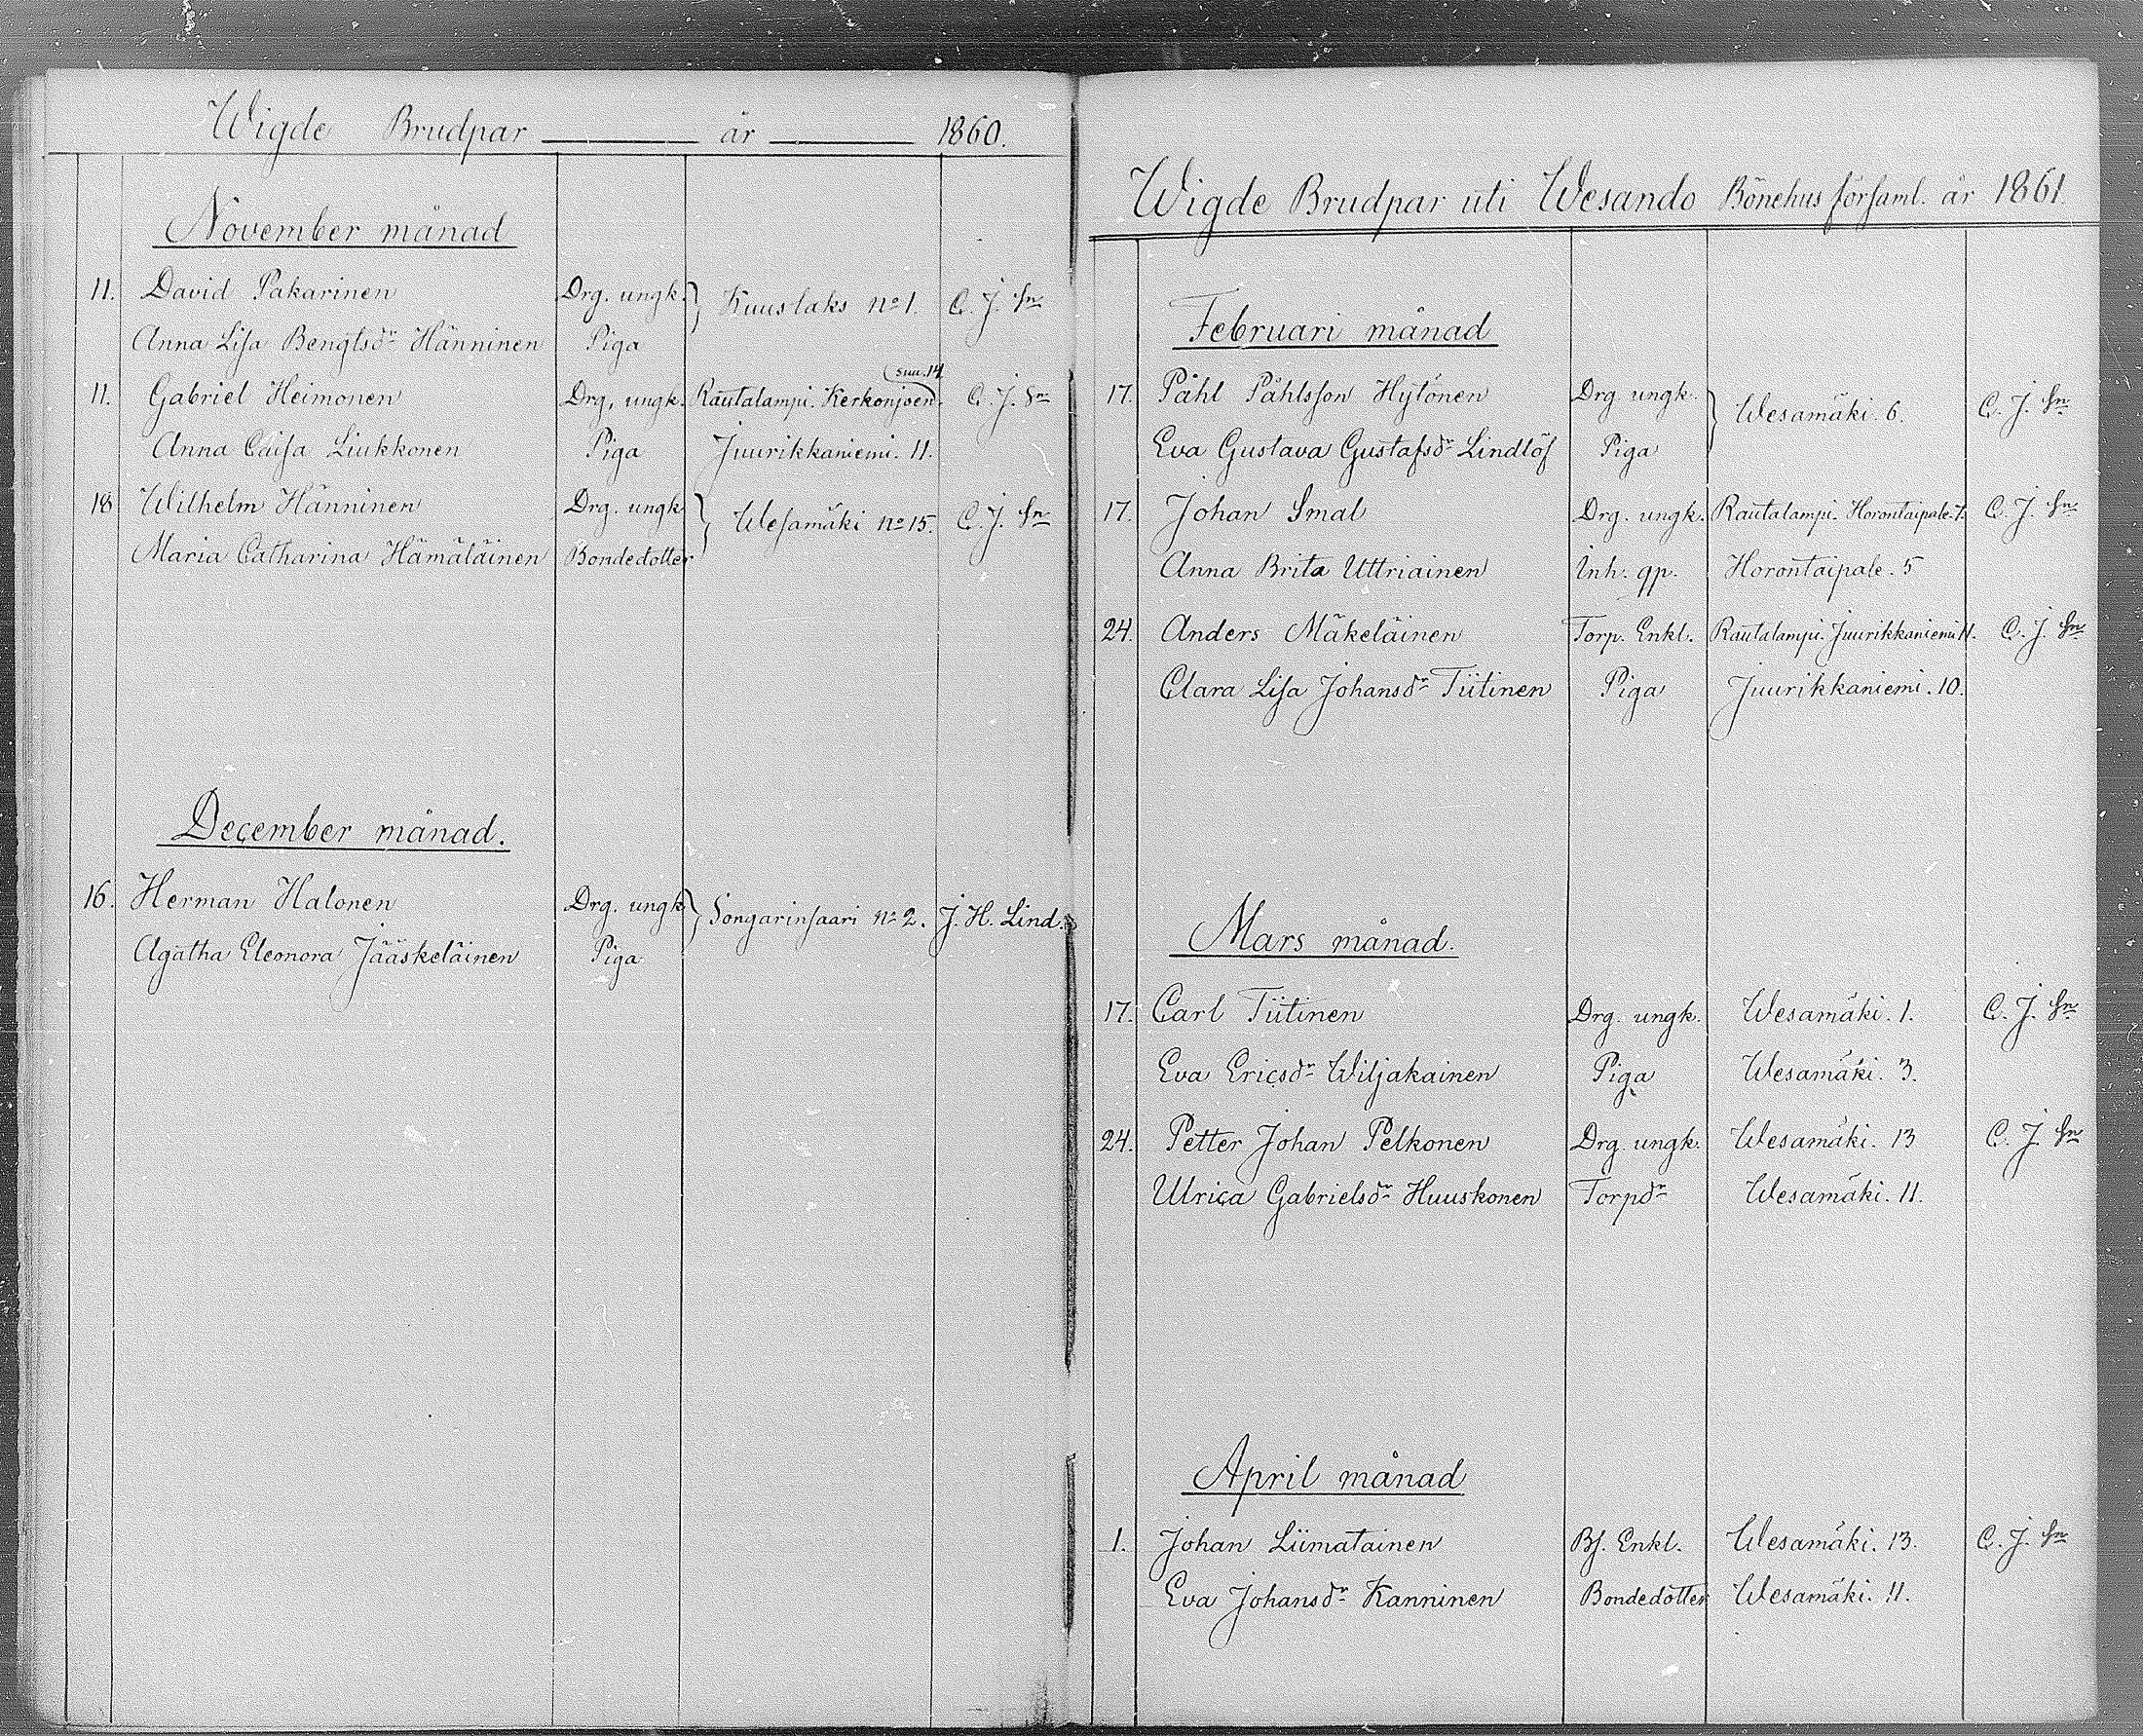 Wigde Brudpar år 1860.
November månad
11. David Pakarinen Drg. ungk. Kuuslaks nº 1. C. J. Sn
Anna Lisa Bengtsdr Hänninen Piga
suu. 14
11. Gabriel Heimonen Drg. ungk. Rautalampi. Kerkonjoen C. J. Sn
Anna Caisa Liukkonen Piga Juurikkaniemi. 11.
18 Wilhelm Hänninen Drg. ungk Wesamäki nº 15. C. J. Sn
Maria Catharina Hämäläinen Bondedotter
December månad.
16. Herman Halonen Drg. ungk Songarinsaari nº 2. J. H. Lind.
Agatha Eleonora Jääskeläinen Piga
Wigde Brudpar uti Wesando Bönehus församl. år 1861.
Februari månad
17. Påhl Påhlsson Hytönen Drg ungk. Wesamäki. 6. C. J. Sn
Eva Gustava Gustafsdr Lindlöf Piga
17. Johan Smal Drg. ungk. Rautalampi. Horontaipale. 7. C. J. Sn
Anna Brita Uttriainen Inh. qp. Horontaipale. 5
24. Anders Mäkeläinen Torp. Enkl. Rautalampi. Juurikkaniemi 11. C. J. Sn
Clara Lisa Johansdr Tiitinen Piga Juurikkaniemi. 10.
Mars månad.
17. Carl Tiitinen Drg. ungk. Wesamäki. 1. C. J. Sn
Eva Ericsdr Wiljakainen Piga Wesamäki. 3.
24. Petter Johan Pelkonen Drg. ungk. Wesamäki. 13 C. J. Sn
Ulrica Gabrielsdr Huuskonen Torpdr Wesamäki. 11.
April månad
1. Johan Liimatainen Bs. Enkl. Wesamäki. 13. C. J. Sn
Eva Johansdr Kanninen Bondedotter Wesamäki. 11.